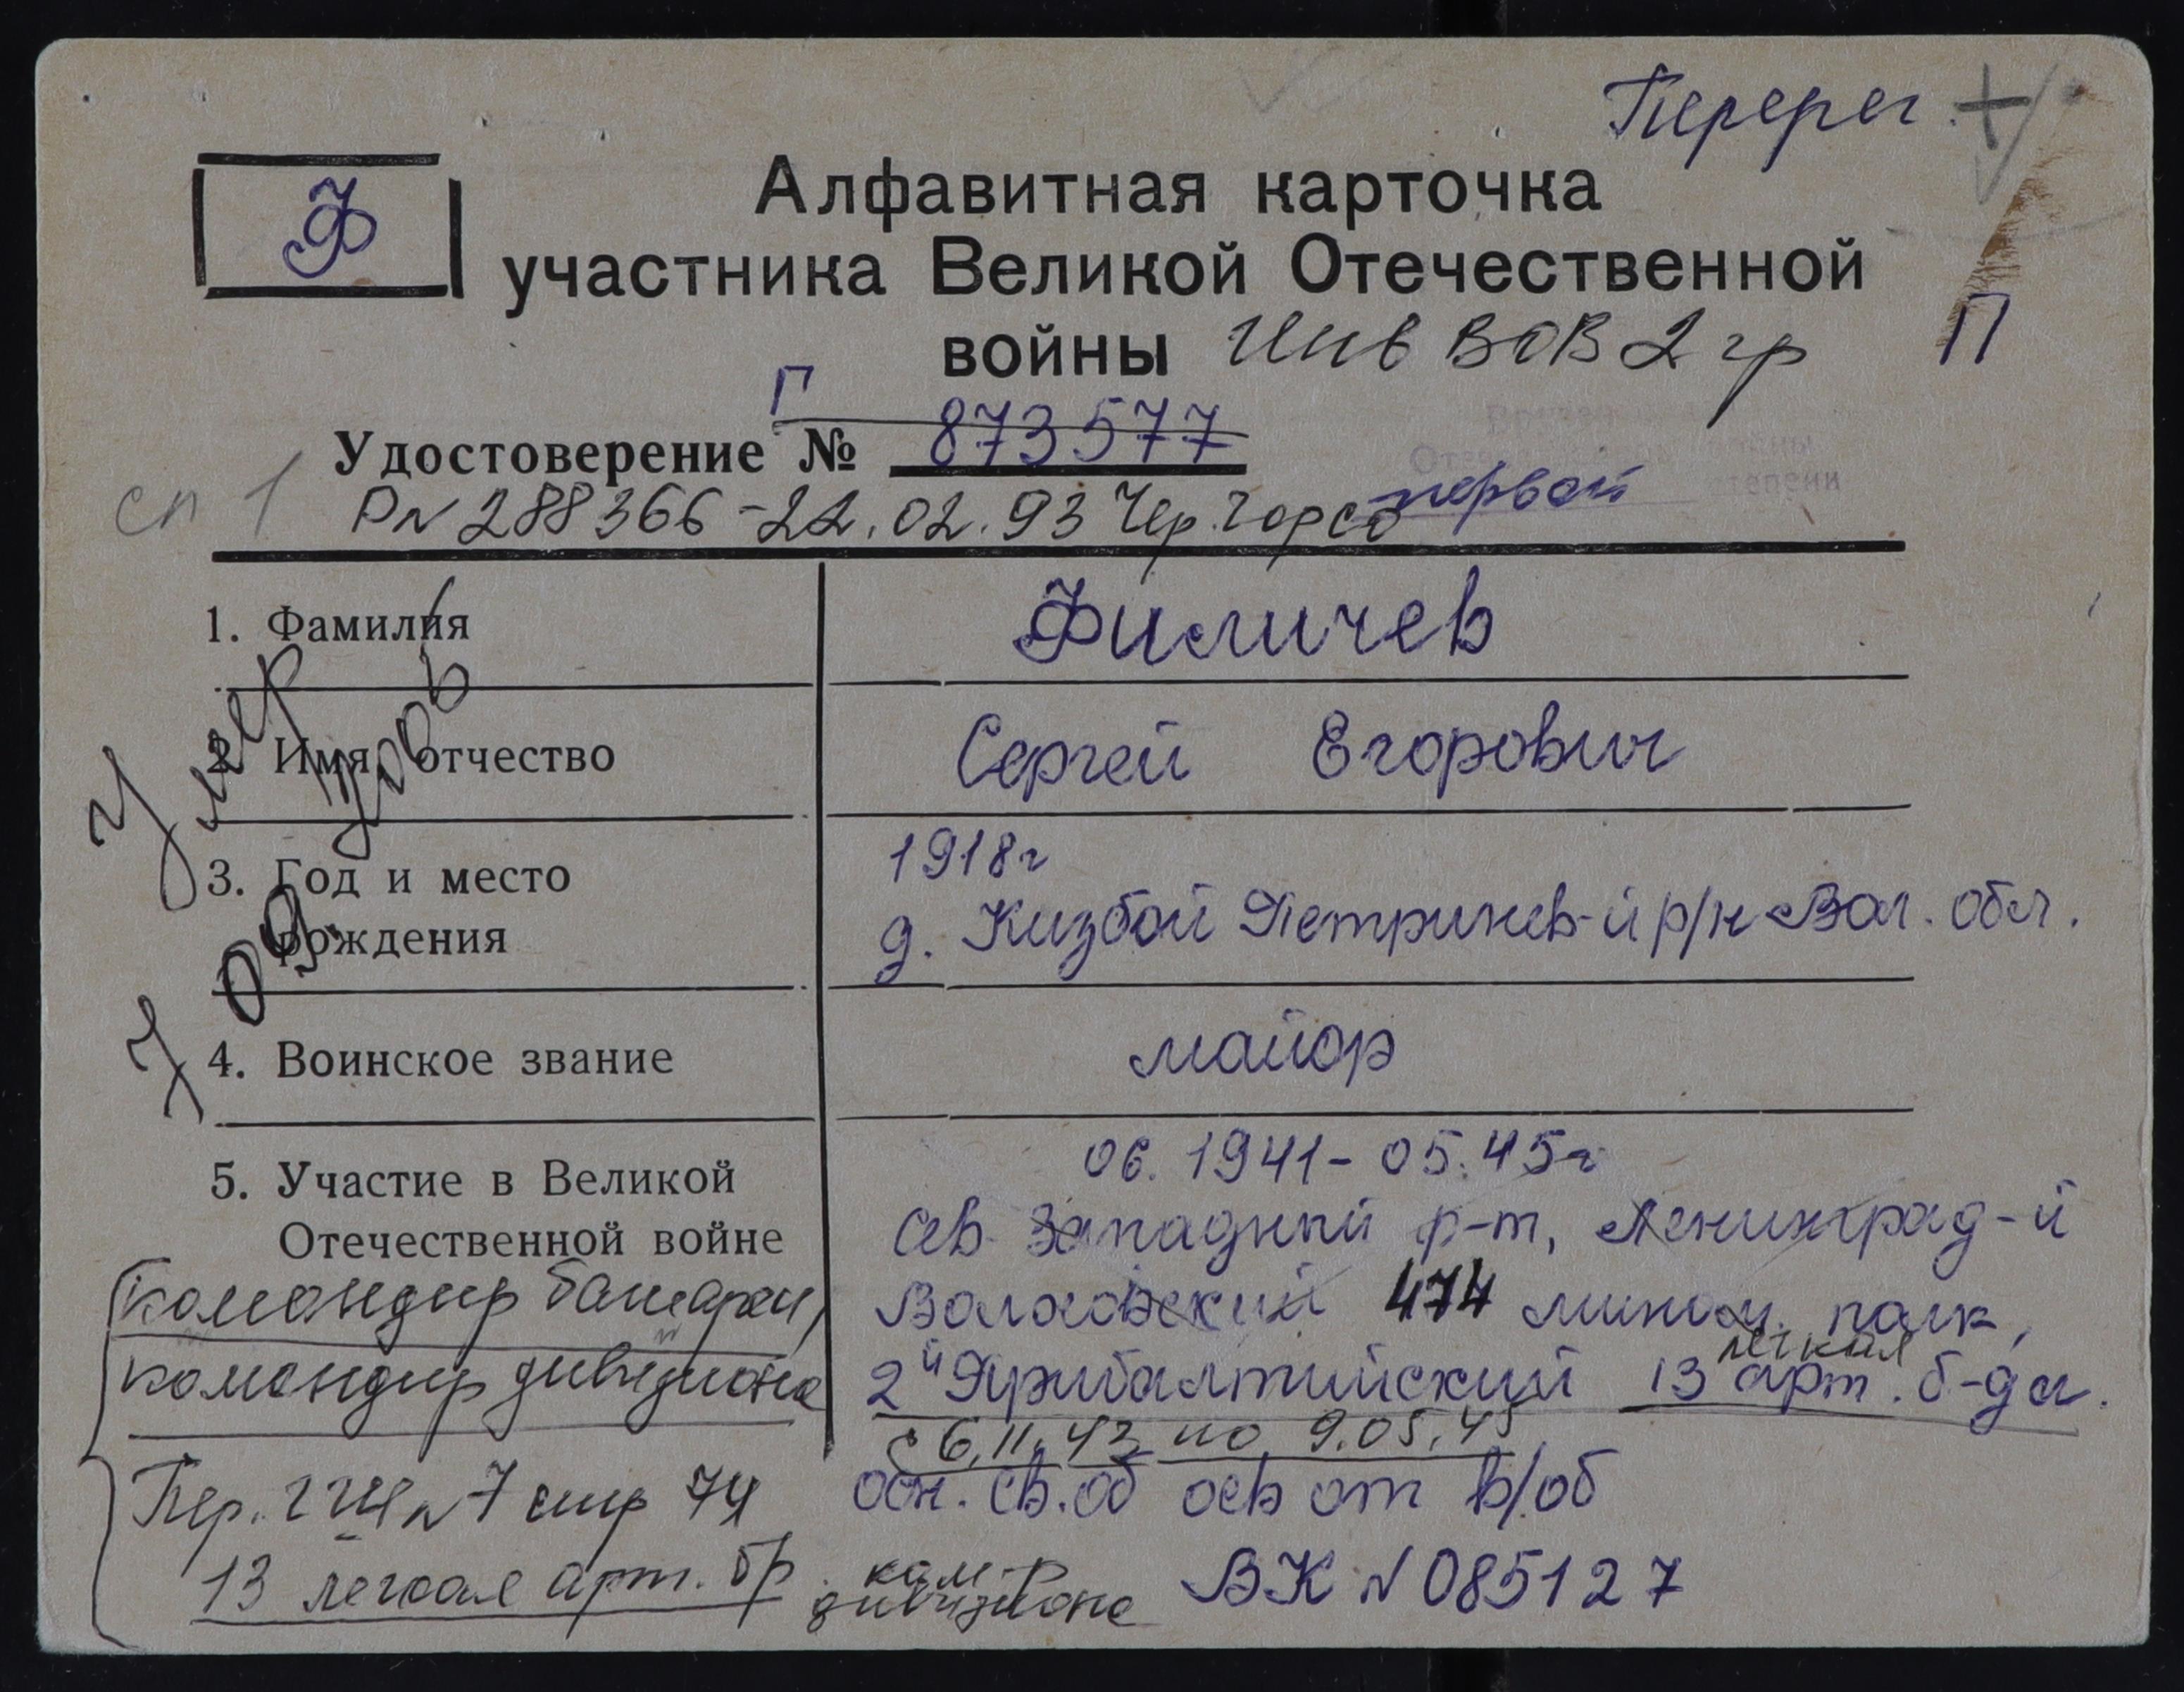 Перерег. +
Ф
Алфавитная карточка
участника Великой Отечественной
войны Инв ВОВ 2 гр
П
Г 873577
Удостоверение №
сп 1 Р№ 288366 - 22.02.93 Чер. горсо
первой
1. Фамилия Филичев
2. Имя, отчество Сергей Егорович
умер
3. Год и место рождения 1918г
д. Кизбой Петринев-й р/н Вол. обл.
4. Воинское звание майор
5. Участие в Великой Отечественной войне
06.1941-05.45г
Сев. Западный ф-т, Ленинград-й
Волховский 474 мином. полк,
легкая
2й Прибалтийский 13 арт. б-да.
с 6.11.42 по 9.05.45
командир батареи,
командир дивизиона
Пер. ГШ № 7 стр 74
13 легкая арт. бр. ком-р дивизиона
осн. св. об осв от в/об
ВК № 085127